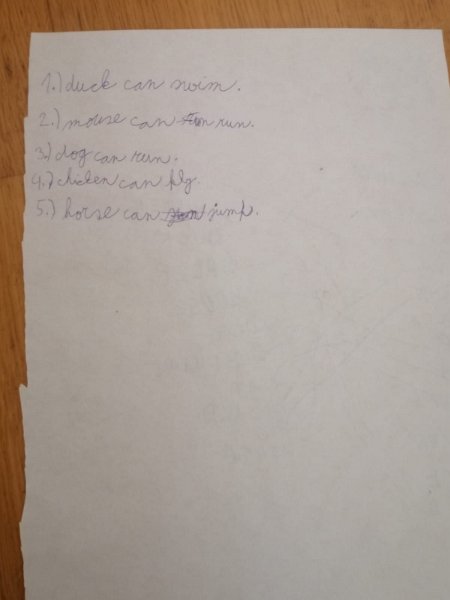 1.) duck can swim.
2.) mouse can run.
3.) dog can run.
4.) chicken can fly.
5.) horse can jump.